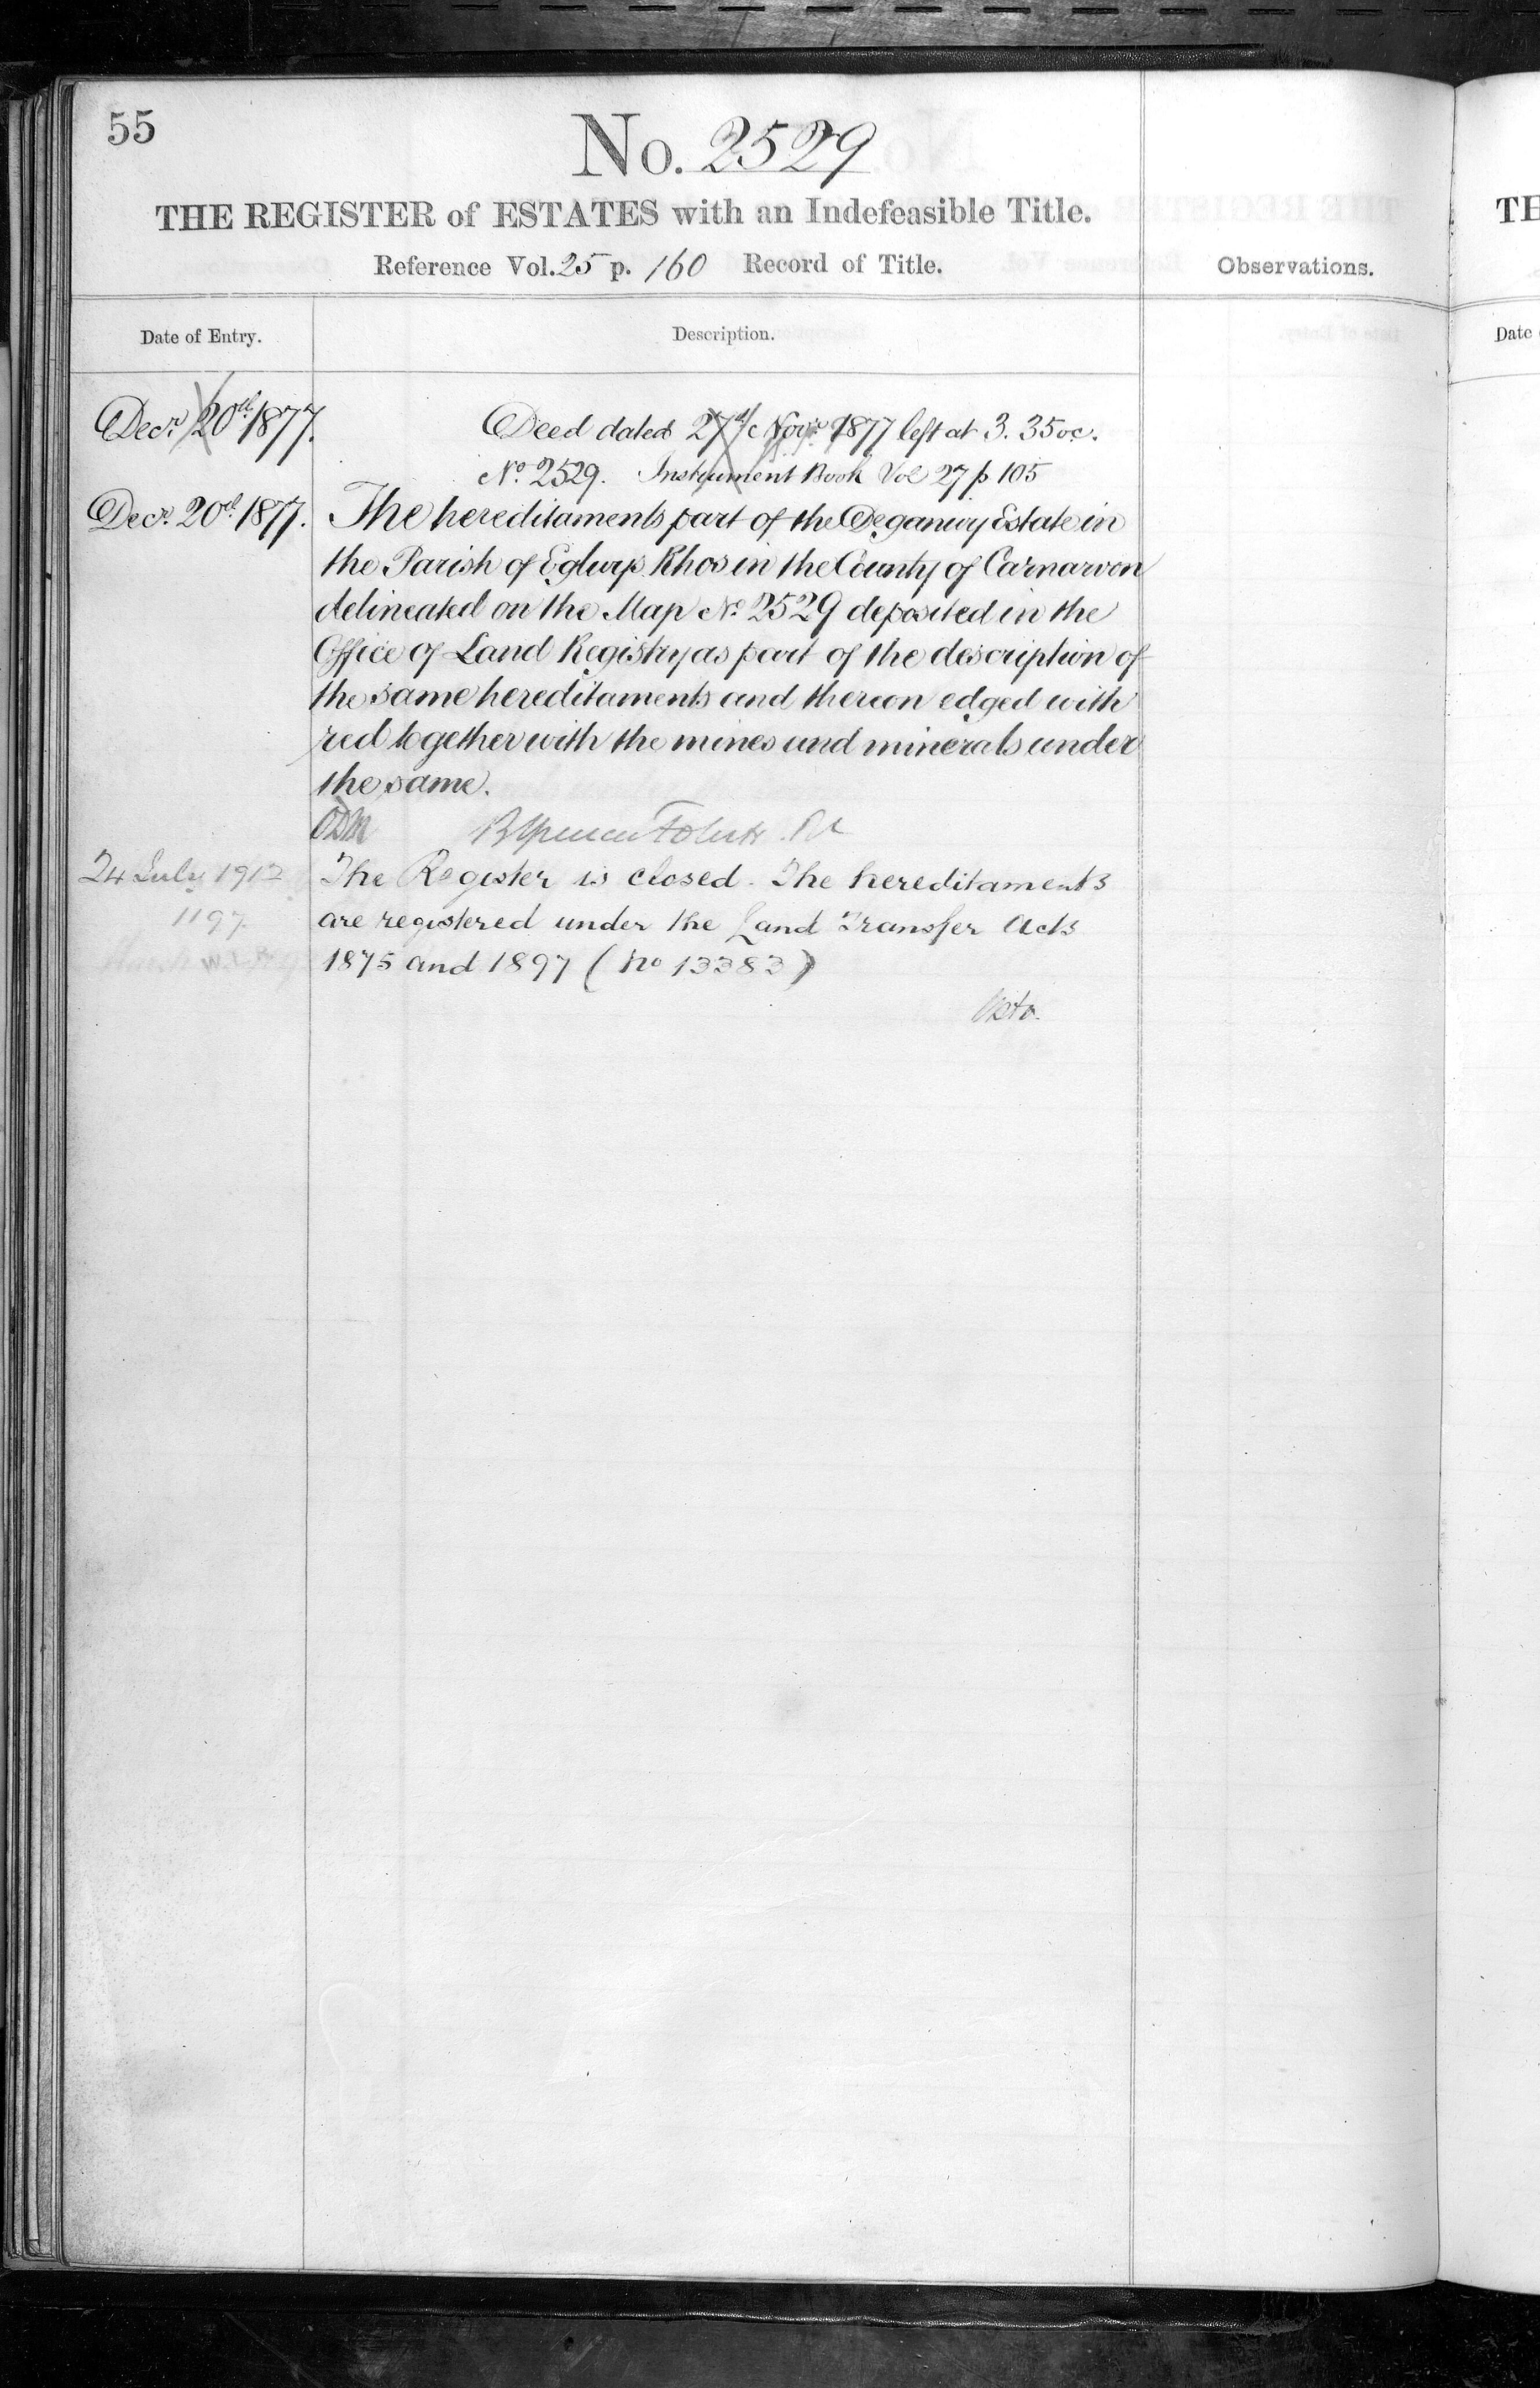 55
No. 2529
THE REGISTER of ESTATES with an Indefeasible Title.
Reference Vol. 25 p. 160 Record of Title.
Observations.
Date of Entry.
Description.
Decr. 20th 1877.
Deed dated 27th Novr 1877 left at 3.35 oc.
No. 2529. Instrument Book Vol 27 p 105
Decr. 20th 1877.
The hereditaments part of the Deganwy Estate in
the Parish of Eglwys Rhos in the County of Carnarvon
delineated on the Map No. 2529 deposited in the
Office of Land Registry as part of the description of
the same hereditaments and thereon edged with
red together with the mines and minerals under
the same.
24 July 1912
The Register is closed. The hereditaments
1197
are registered under the Land Transfer Acts
1875 and 1897 (No 13383)
TH
Date